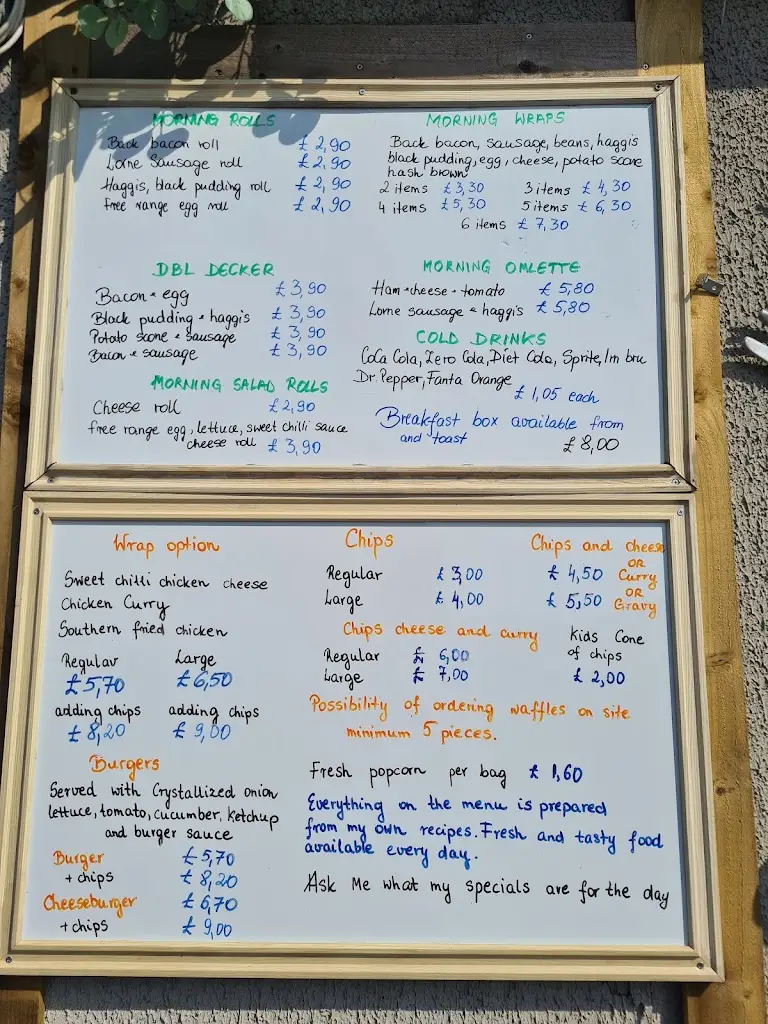 MORNING ROLLS
Back bacon roll £ 2,90
Lorne Sausage roll £ 2,90
Haggis, black pudding roll £ 2,90
free range egg roll £ 2,90
MORNING WRAPS
Back bacon, sausage, beans, haggis
black pudding, egg, cheese, potato scone
hash brown
2 items £ 3,30 3 items £ 4,30
4 items £ 5,30 5 items £ 6,30
6 items £ 7,30
DBL DECKER
Bacon + egg £ 3,90
Black pudding + haggis £ 3,90
Potato scone + sausage £ 3,90
Bacon + sausage £ 3,90
MORNING OMLETTE
Ham + cheese + tomato £ 5,80
Lorne sausage + haggis £ 5,80
MORNING SALAD ROLLS
Cheese roll £ 2,90
free range egg, lettuce, sweet chilli sauce
cheese roll £ 3,90
COLD DRINKS
Coca Cola, Zero Cola, Diet Cola, Sprite, Irn bru
Dr. Pepper, Fanta Orange
£ 1,05 each
Breakfast box available from
and toast £ 8,00
Wrap option
Sweet chilli chicken cheese
Chicken Curry
Southern fried chicken
Regular Large
£ 5,70 £ 6,50
adding chips adding chips
£ 8,20 £ 9,00
Burgers
Served with Crystallized onion
lettuce, tomato, cucumber, ketchup
and burger sauce
Burger £ 5,70
+ chips £ 8,20
Cheeseburger £ 6,70
+ chips £ 9,00
Chips
Regular £ 3,00
Large £ 4,00
Chips and cheese
OR
£ 4,50 Curry
OR
£ 5,50 Gravy
Chips cheese and curry
Regular £ 6,00
Large £ 7,00
Kids Cone
of chips
£ 2,00
Possibility of ordering waffles on site
minimum 5 pieces.
Fresh popcorn per bag £ 1,60
Everything on the menu is prepared
from my own recipes. Fresh and tasty food
available every day.
Ask Me what my specials are for the day